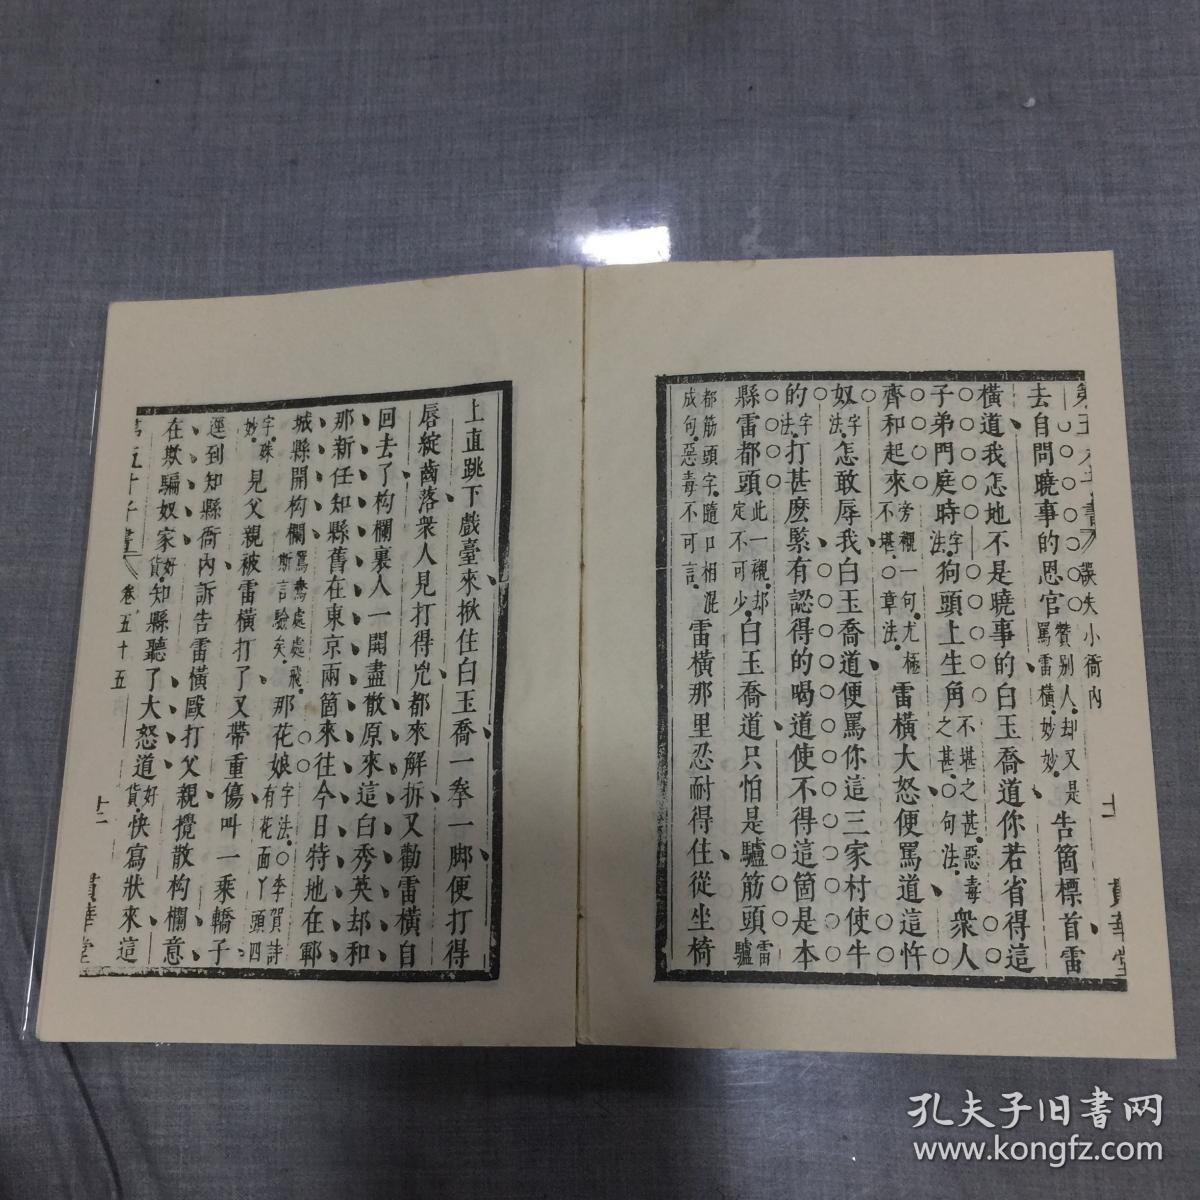 第五才子書 誤失小衙內 十一 貫華堂
去自問曉事的恩官贊別人却又是罵雷橫妙妙告箇標首雷
橫道我怎地不是曉事的白玉喬道你若省得這
子弟門庭時字法狗頭上生角不堪之甚惡毒之甚○句法衆人
齊和起來旁襯一句尤極不堪○章法雷橫大怒便罵道這忤
奴字法怎敢辱我白玉喬道便罵你這三家村使牛
的字法打甚麽緊有認得的喝道使不得這箇是本
縣雷都頭此一襯却定不可少白玉喬道只怕是驢筋頭雷驢
都筋頭字隨口相混成句惡毒不可言雷橫那里忍耐得住從坐椅
上直跳下戲臺來揪住白玉喬一拳一脚便打得
唇綻齒落衆人見打得兇都來解拆又勸雷橫自
回去了构欄裏人一開盡散原來這白秀英却和
那新任知縣舊在東京兩箇來往今日特地在鄆
城縣開构欄鴛鴦處處飛斯言驗矣那花娘字法○李賀詩有花面丫頭四
字殊妙見父親被雷橫打了又帶重傷叫一乘轎子
逕到知縣衙內訴告雷橫毆打父親攪散构欄意
在欺騙奴家好貨知縣聽了大怒道好貨快寫狀來這
第五才子書 卷五十五 十二 貫華堂
孔夫子旧書网
www.kongfz.com